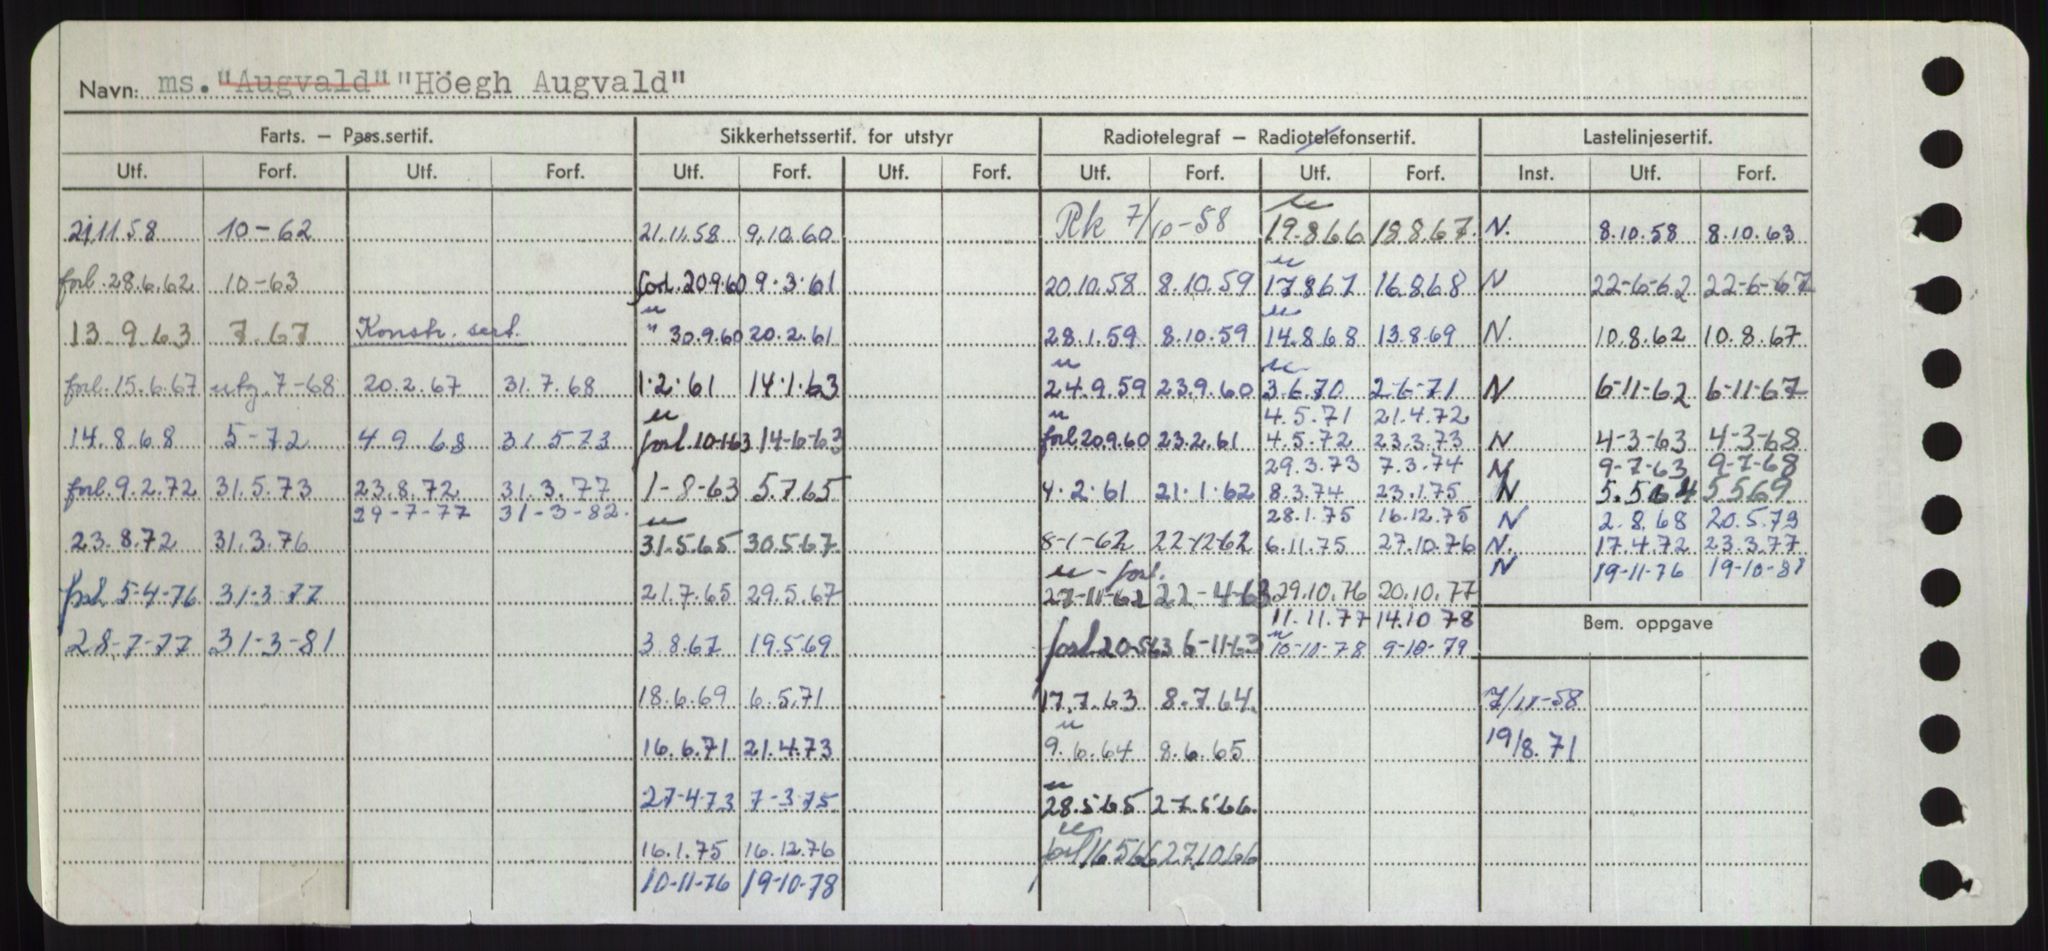 Navn: ms. "Augvald" "Höegh Augvald"
Farts. – Pass.sertif. Sikkerhetssertif. for utstyr Radiotelegraf – Radiotelefonsertif. Lastelinjesertif.
Utf. Forf. Utf. Forf. Utf. Forf. Utf. Forf. Utf. Forf. Utf. Forf. Inst. Utf. Forf.
21.11.58 10-62 21.11.58 9.10.60 Rk 7/10-58 19.8.66 18.8.67. N. 8.10.58 8.10.63
forl. 28.6.62 10-63 forl. 20.9.60 9.3.61 20.10.58 8.10.59 17.8.67 16.8.68 N 22-6-62 22-6-67
13.9.63 7.67 Konstr. sert. " 30.9.60 20.2.61 28.1.59 8.10.59 14.8.68 13.8.69 N. 10.8.62 10.8.67
forl. 15.6.67 utg. 7-68 20.2.67 31.7.68 1.2.61 14.1.63 24.9.59 23.9.60 3.6.70 2-6-71 N 6-11-62 6-11-67
4.5.71 21.4.72
14.8.68 5-72 4.9.68 31.5.73 forl. 10-1-63 14-6-63 forl. 20.9.60 23.2.61 4.5.72 23.3.73 N 4-3-63 4-3-68
29.3.73 7.3.74 N 9-7-63 9-7-68
forl. 9.2.72 31.5.73 23.8.72 31.3.77 1-8-63 5.7.65 4.2.61 21.1.62 8.3.74 23.1.75 N 5.5.64 5.5.69
29-7-77 31-3-82. 28.1.75 16.12.75 N 2.8.68 20.5.73
23.8.72 31.3.76 31.5.65 30.5.67 8-1-62 22-12-62 6.11.75 27.10.76 N. 17.4.72 23.3.77
forl. N 19-11-76 19-10-81
forl. 5-4-76 31-3-77 21.7.65 29.5.67 27-11-62 22-4-63 29.10.76 20.10.77
11.11.77 14.10.78 Bem. oppgave
28-7-77 31-3-81 3.8.67 19.5.69 forl. 20-5-63 6-11-63 10-11-78 9-10-79
18.6.69 6.5.71 17.7.63 8.7.64. 7/11-58
16.6.71 21.4.73 9.6.64 8.6.65 19/8.71
27-4-73 7-3-75 28.5.65 27.5.66.
16.1.75 16.12.76 forl 16.5.66 27.10.66
10-11-76 19-10-78